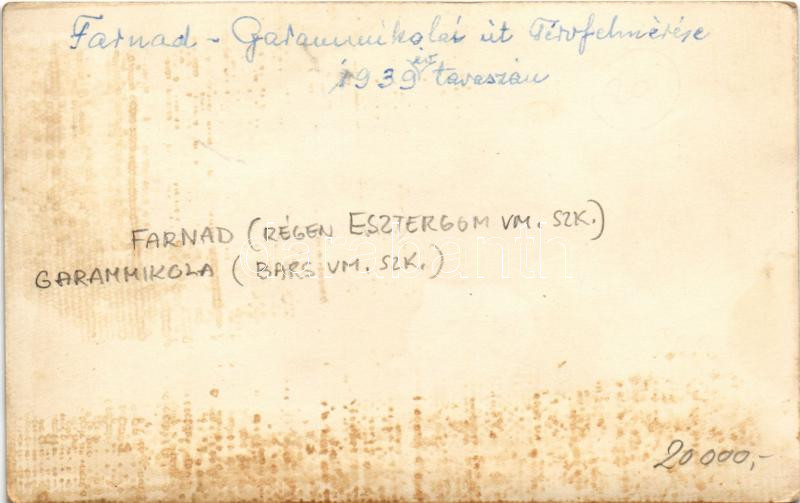 Farnad - Garammikolai út Térvfelmèrése
1939 év tavaszán
FARNAD (RÉGEN ESZTERGOM VM. SZK.)
GARAMMIKOLA ( BARS VM. SZK.)
20 000,-